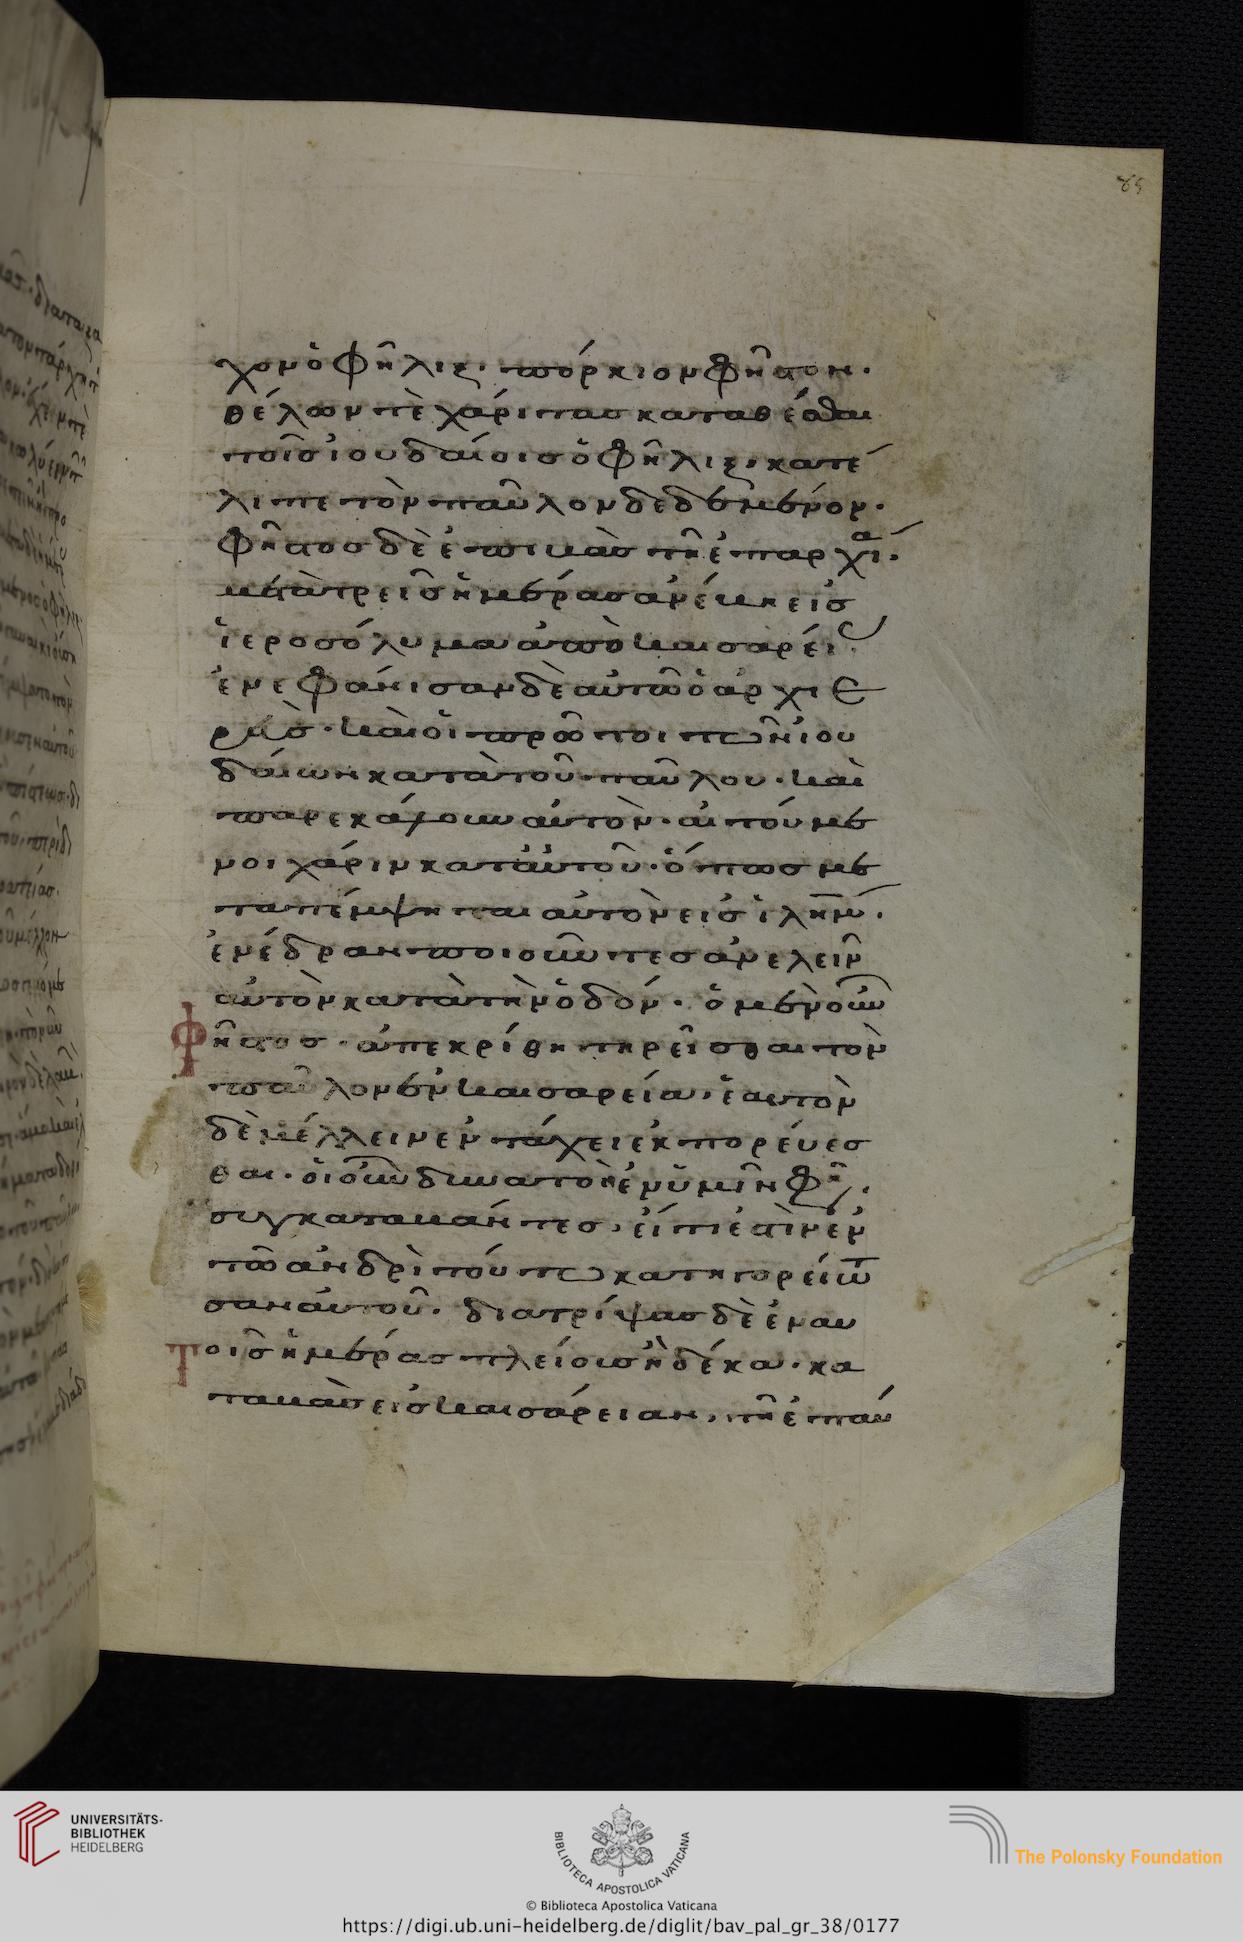 85
χον ὁ Φῆλιξ· πόρκιον Φῆστον·
θέλων τὲ χάριτας καταθέσθαι
τοῖς ἰουδαίοις ὁ Φῆλιξ, κατέ
λιπε τὸν παῦλον δεδεμένον·
Φῆστος δὲ ἐπιβὰς τῆ ἐπαρχί̈α·
μετὰ τρεῖς ἡμέρας ἀνέβη εἰς
ἱεροσόλυμα ἀπὸ καισαρεί
ἐνεφάνισαν δὲ αὐτῶ ὁ ἀρχιε
ρεὺς· καὶ οἱ πρῶτοι τῶν ἰου
δαίων κατὰ τοῦ παύλου· καὶ
παρεκάλουν αὐτὸν· αἰτούμε
νοι χάριν κατ᾽ αὐτοῦ· ὅπως με
ταπέμψηται αὐτὸν εἰς ἱλῆμ·
ἐνέδραν ποιοῦντες ἀνελεῖν
αὐτὸν κατὰ τὴν ὁδόν· ὁ μὲν οὖν
Φῆστος· ἀπεκρίθη τηρεῖσθαι τὸν
παῦλον ἐν καισαρεία, ἑαυτὸν
δὲ μέλλειν ἐν τάχει ἐκπορεύεσ
θαι· οἱ οὖν δυνατοὶ ἐν ὑμῖν φη,
συγκαταβάντες, εἴ τι ἐστὶν ἐν
τῶ ἀνδρὶ τούτω κατηγορείτω
σαν αὐτοῦ· διατρίψας δὲ ἐν αυ
Τοῖς ἡμέρας πλείους ἢ δέκα· κα
ταβὰς εἰς καισάρειαν, τῆ ἐπαύ
UNIVERSITÄTS-
BIBLIOTHEK
HEIDELBERG
BIBLIOTECA APOSTOLICA VATICANA
The Polonsky Foundation
© Biblioteca Apostolica Vaticana
https://digi.ub.uni-heidelberg.de/diglit/bav_pal_gr_38/0177